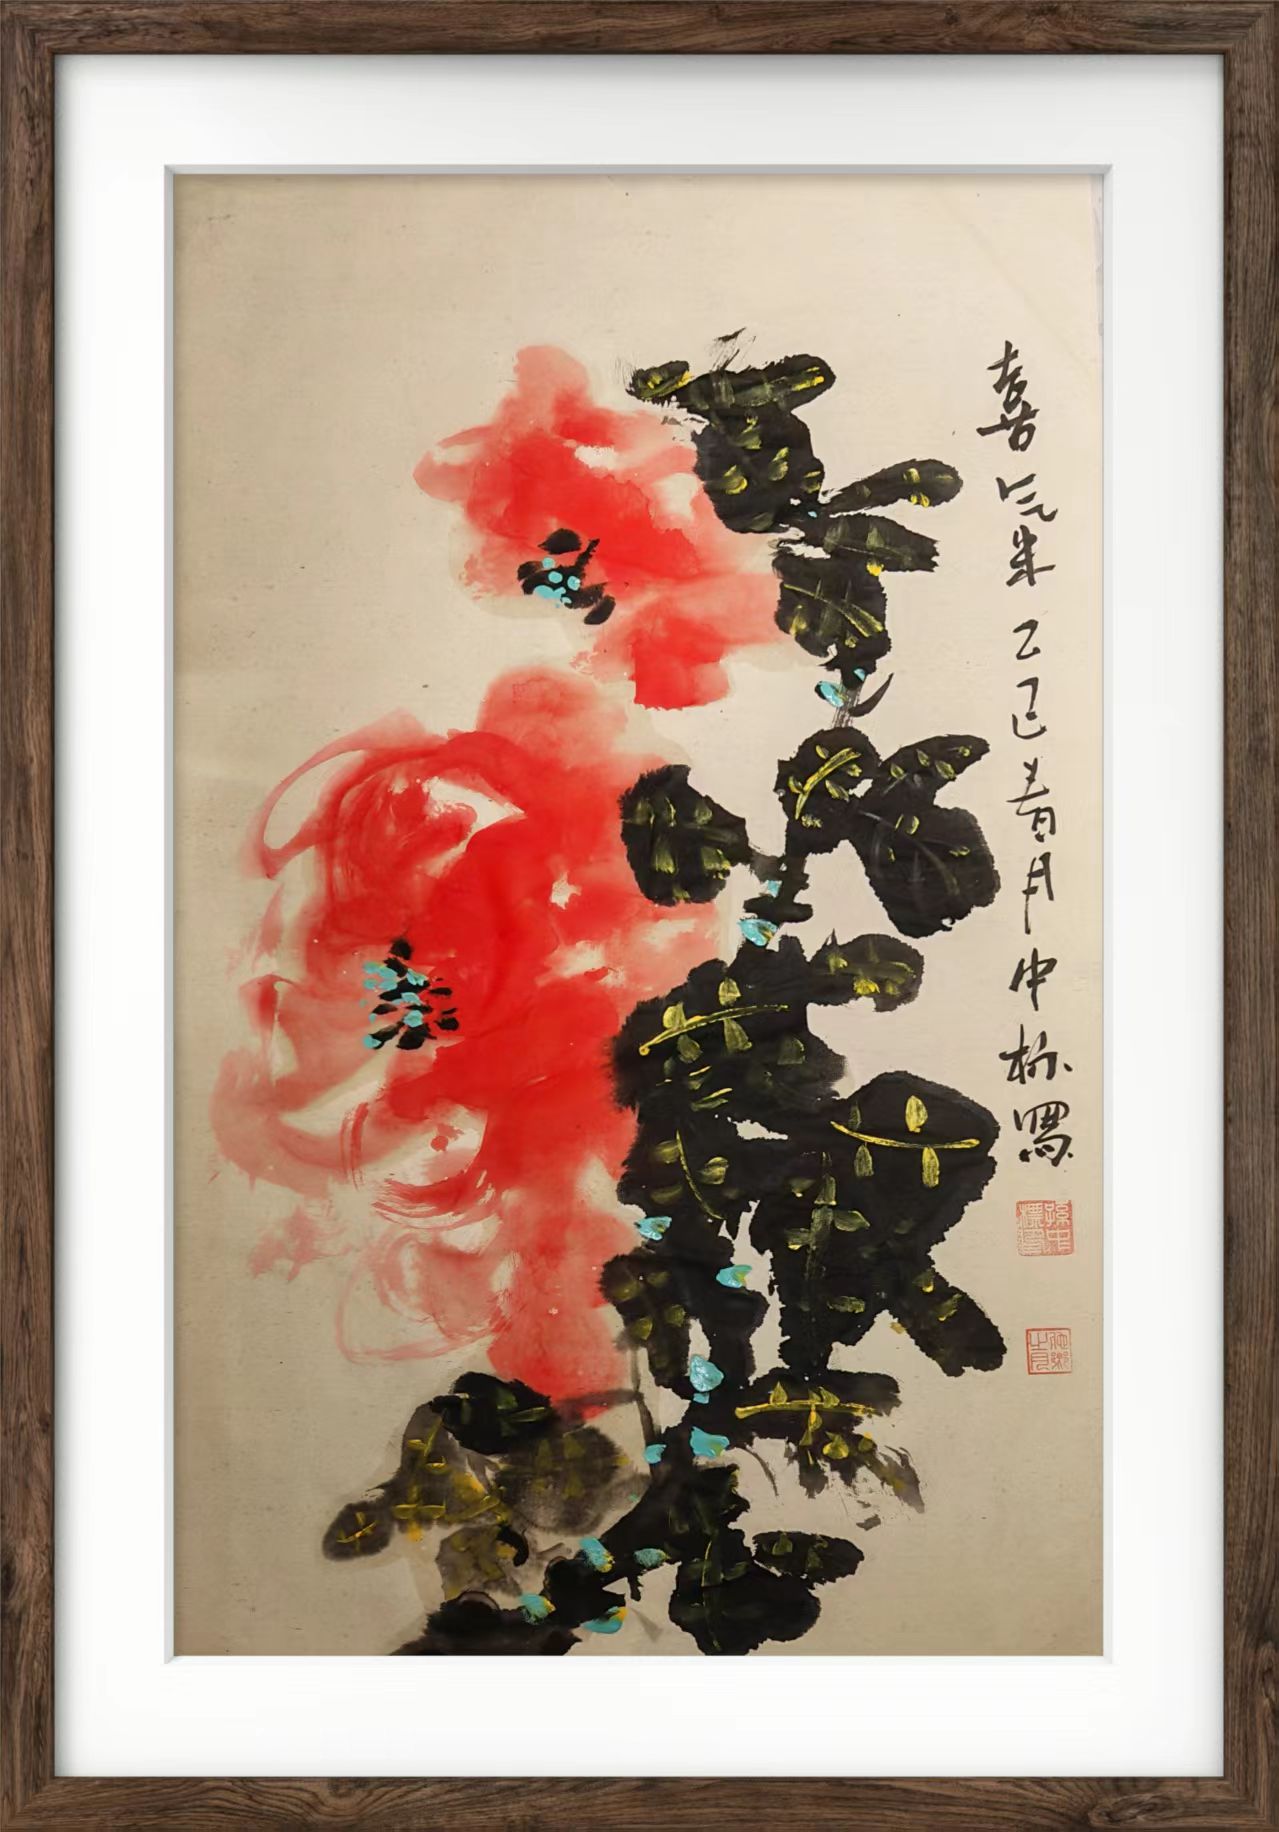 喜氣来乙巳春月中标寫